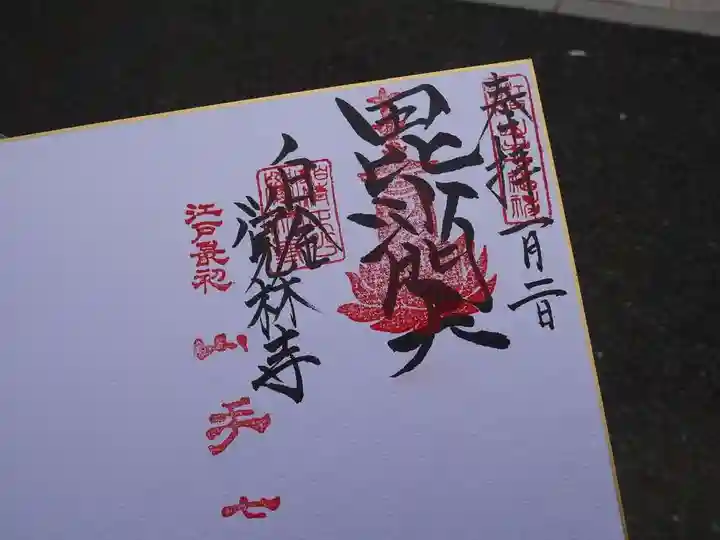 奉拝
一月二日
毘沙門天
白金
覚林寺
江戸最初
山手七